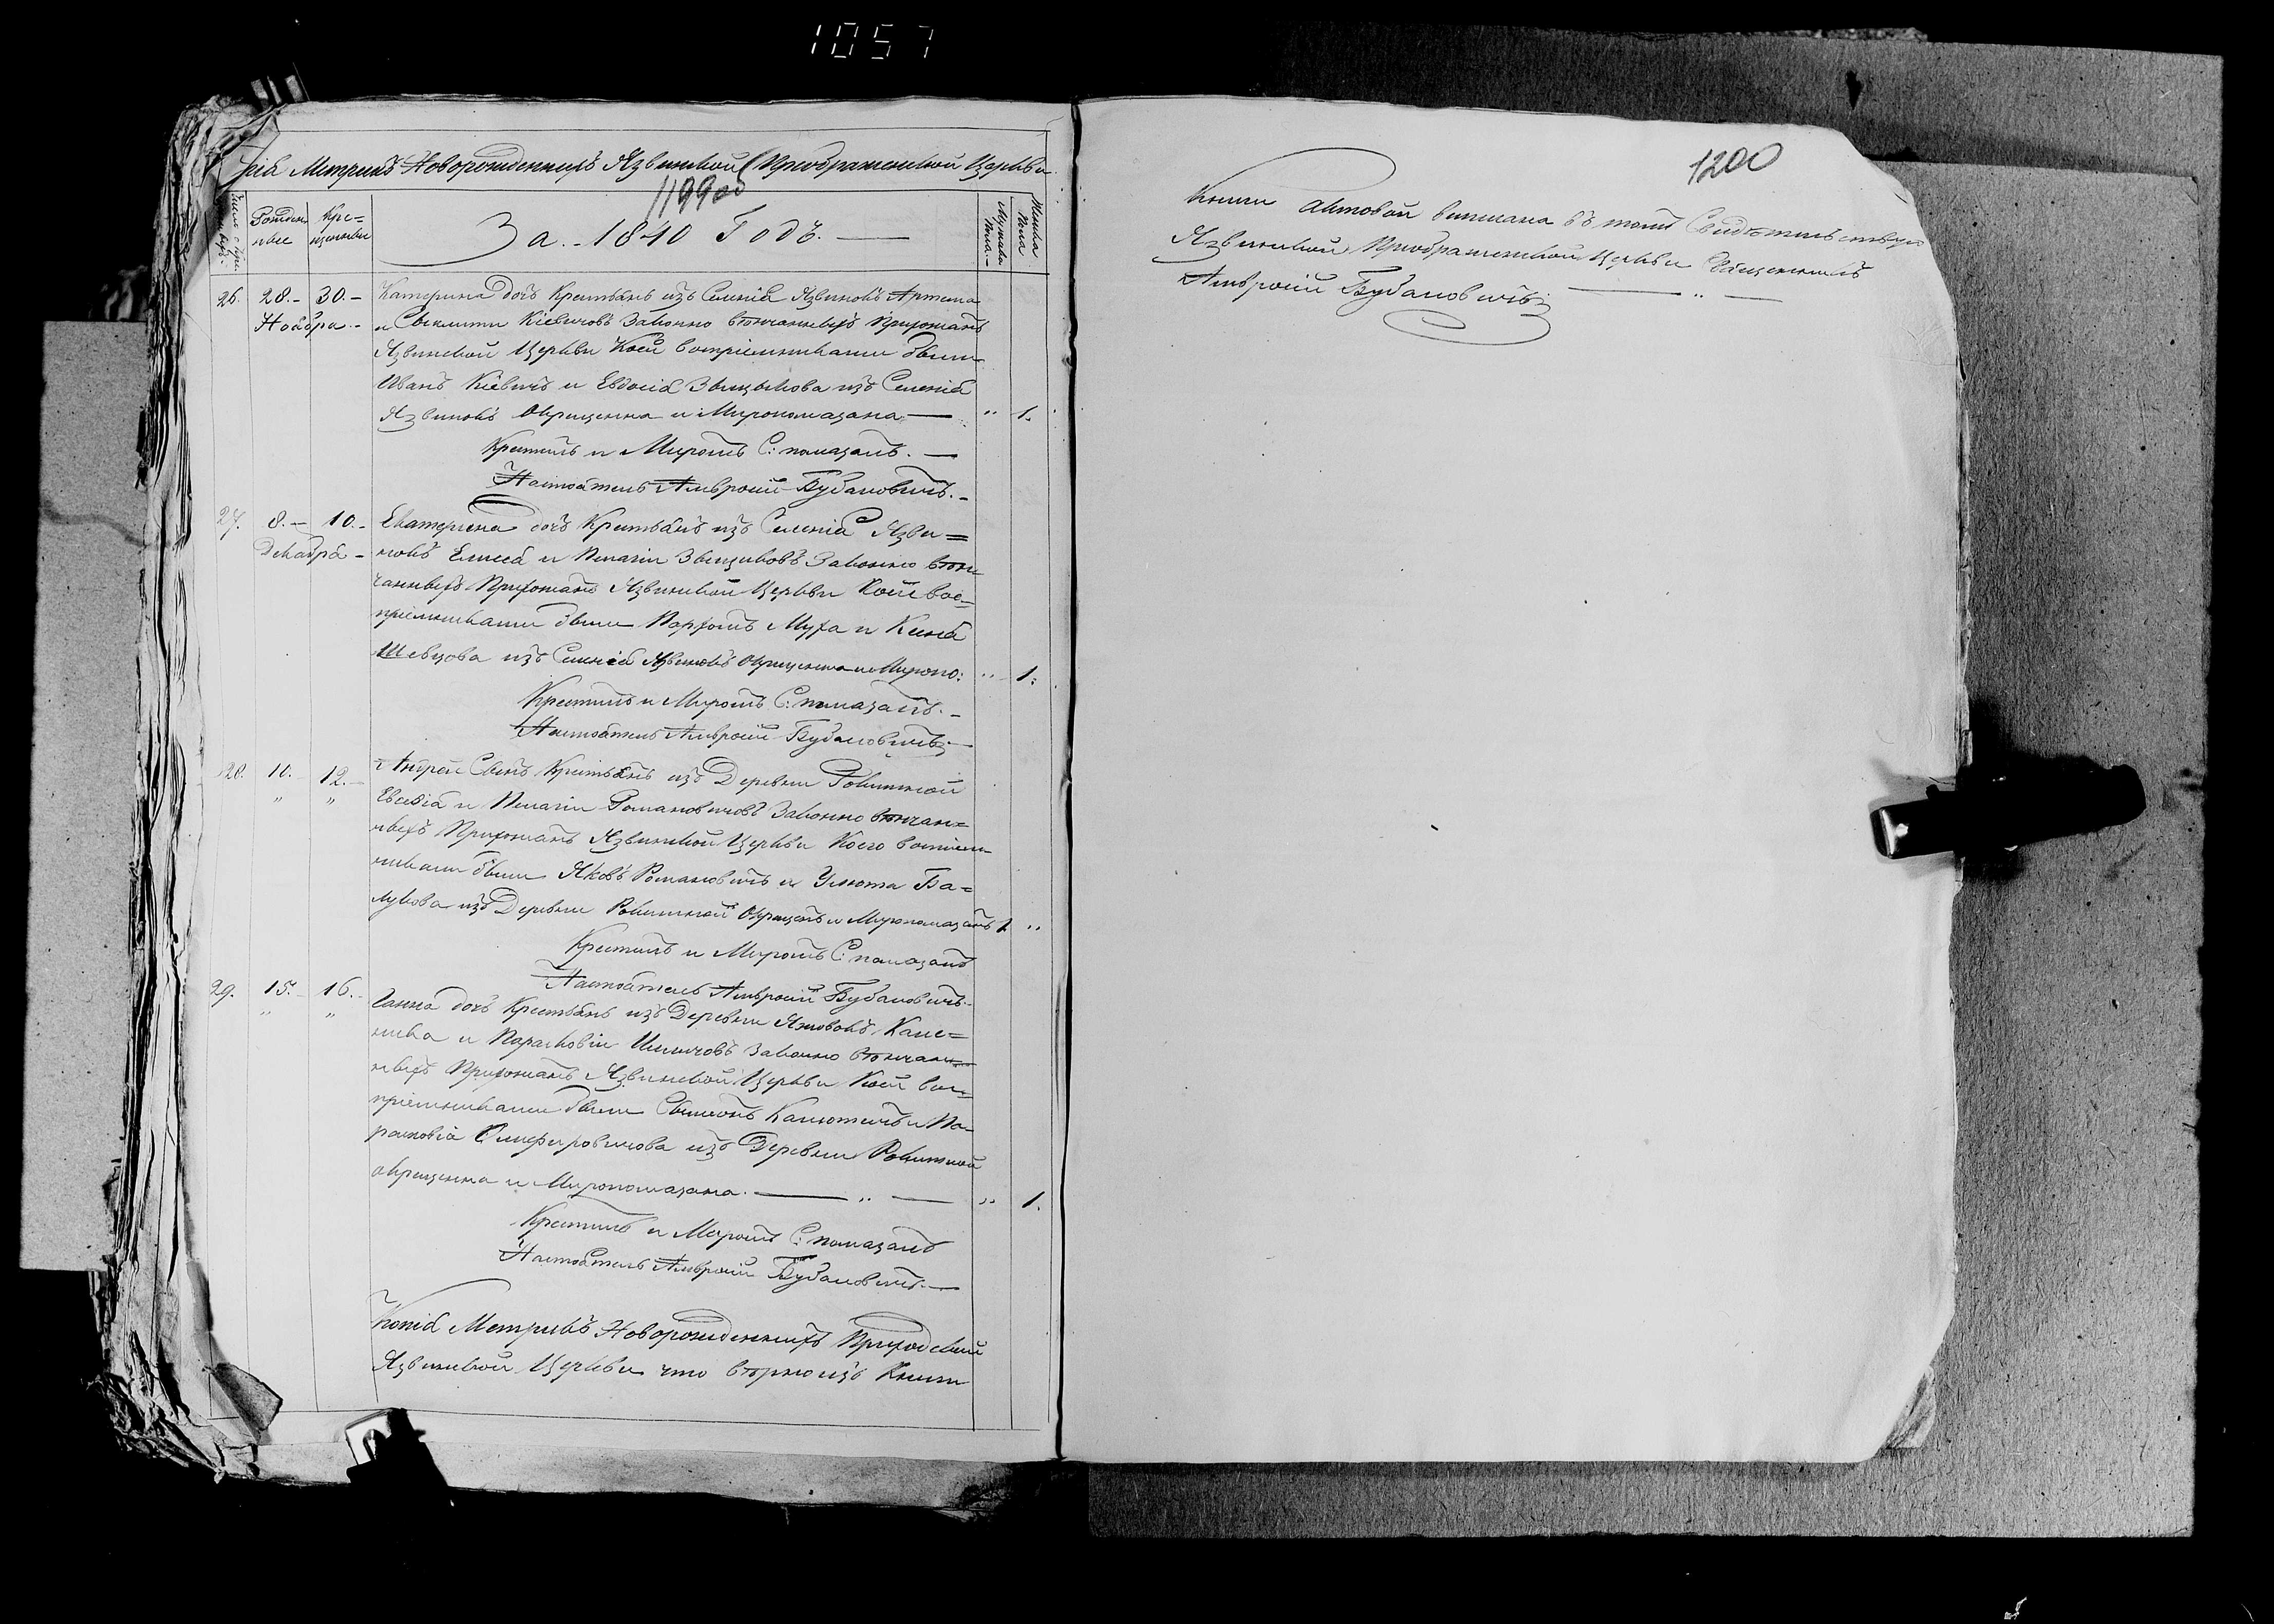 1057
пія Метрикъ Новорожденныхъ Язвинской Преображенской Церкви
1199 об
Рожден
ные
Кре=
щенные
За. 1840 Годъ.
Мужска
пола.
Женска
пола
26. 28. 30.
Ноября.
Катерина дочь Крестьянъ изъ Селенія Язвинокъ Артема
и Кіевичовъ Законно вѣнчанныхъ Прихожанъ
Язвинской Церкви Коей воспріемниками были
Иванъ Кіевичъ и Евдосія Звицькова изъ Селенія
Язвинокъ Окрещенна и Миропомазана 1.
Крестилъ и Миромъ С: помазалъ.
Настоятель Амвросій Бубановичъ.
27. 8. 10.
Декабря
Екатерина дочь Крестьянъ изъ Селенія Язви=
нокъ Елисея и Пелагіи Звицьковъ Законно вѣн
чанныхъ Прихожанъ Язвинской Церкви Коей вос=
пріемниками были Парфомъ Муха и Ксенія
Шевцова изъ Селенія Язвинокъ Окрещенна и Миропо: 1:
Крестилъ и Миромъ С: помазалъ.
Настоятель Амвросій Бубановичъ
28. 10. 12.
Андрей Сынъ Крестьянъ изъ Деревни Ровитной
Евсевія и Пелагіи Романовичовъ Законно вѣнчан=
ныхъ Прихожанъ Язвинской Церкви Коего воспріем
никами были Яковъ Романовичъ и Улюта Ба=
лукова изъ Деревни Ровитной Окрещенъ и Миропомазанъ 1
Крестилъ и Миромъ С: помазалъ
Настоятель Амвросій Бубановичъ.
29. 15. 16.
Ганна дочь Крестьянъ изъ Деревни Яжовокъ Кале=
ника и Парасковіи Законно вѣнчан
ныхъ Прихожанъ Язвинской Церкви Коей вос=
пріемниками были Сымонъ Калютичъ и Па=
расковія Олиферовичова изъ Деревни Ровитной
окрещенна и Миропомазана. 1.
Крестилъ и Миромъ С: помазалъ
Настоятель Амвросій Бубановичъ.
Копія Метрикъ Новорожденныхъ Приходской
Язвинской Церкви что вѣрно изъ Книги
1200
Книги актовой выписана въ томъ Свидѣтельствую
Язвинской Преображенской Церкви Священникъ
Амвросій Бубановичъ